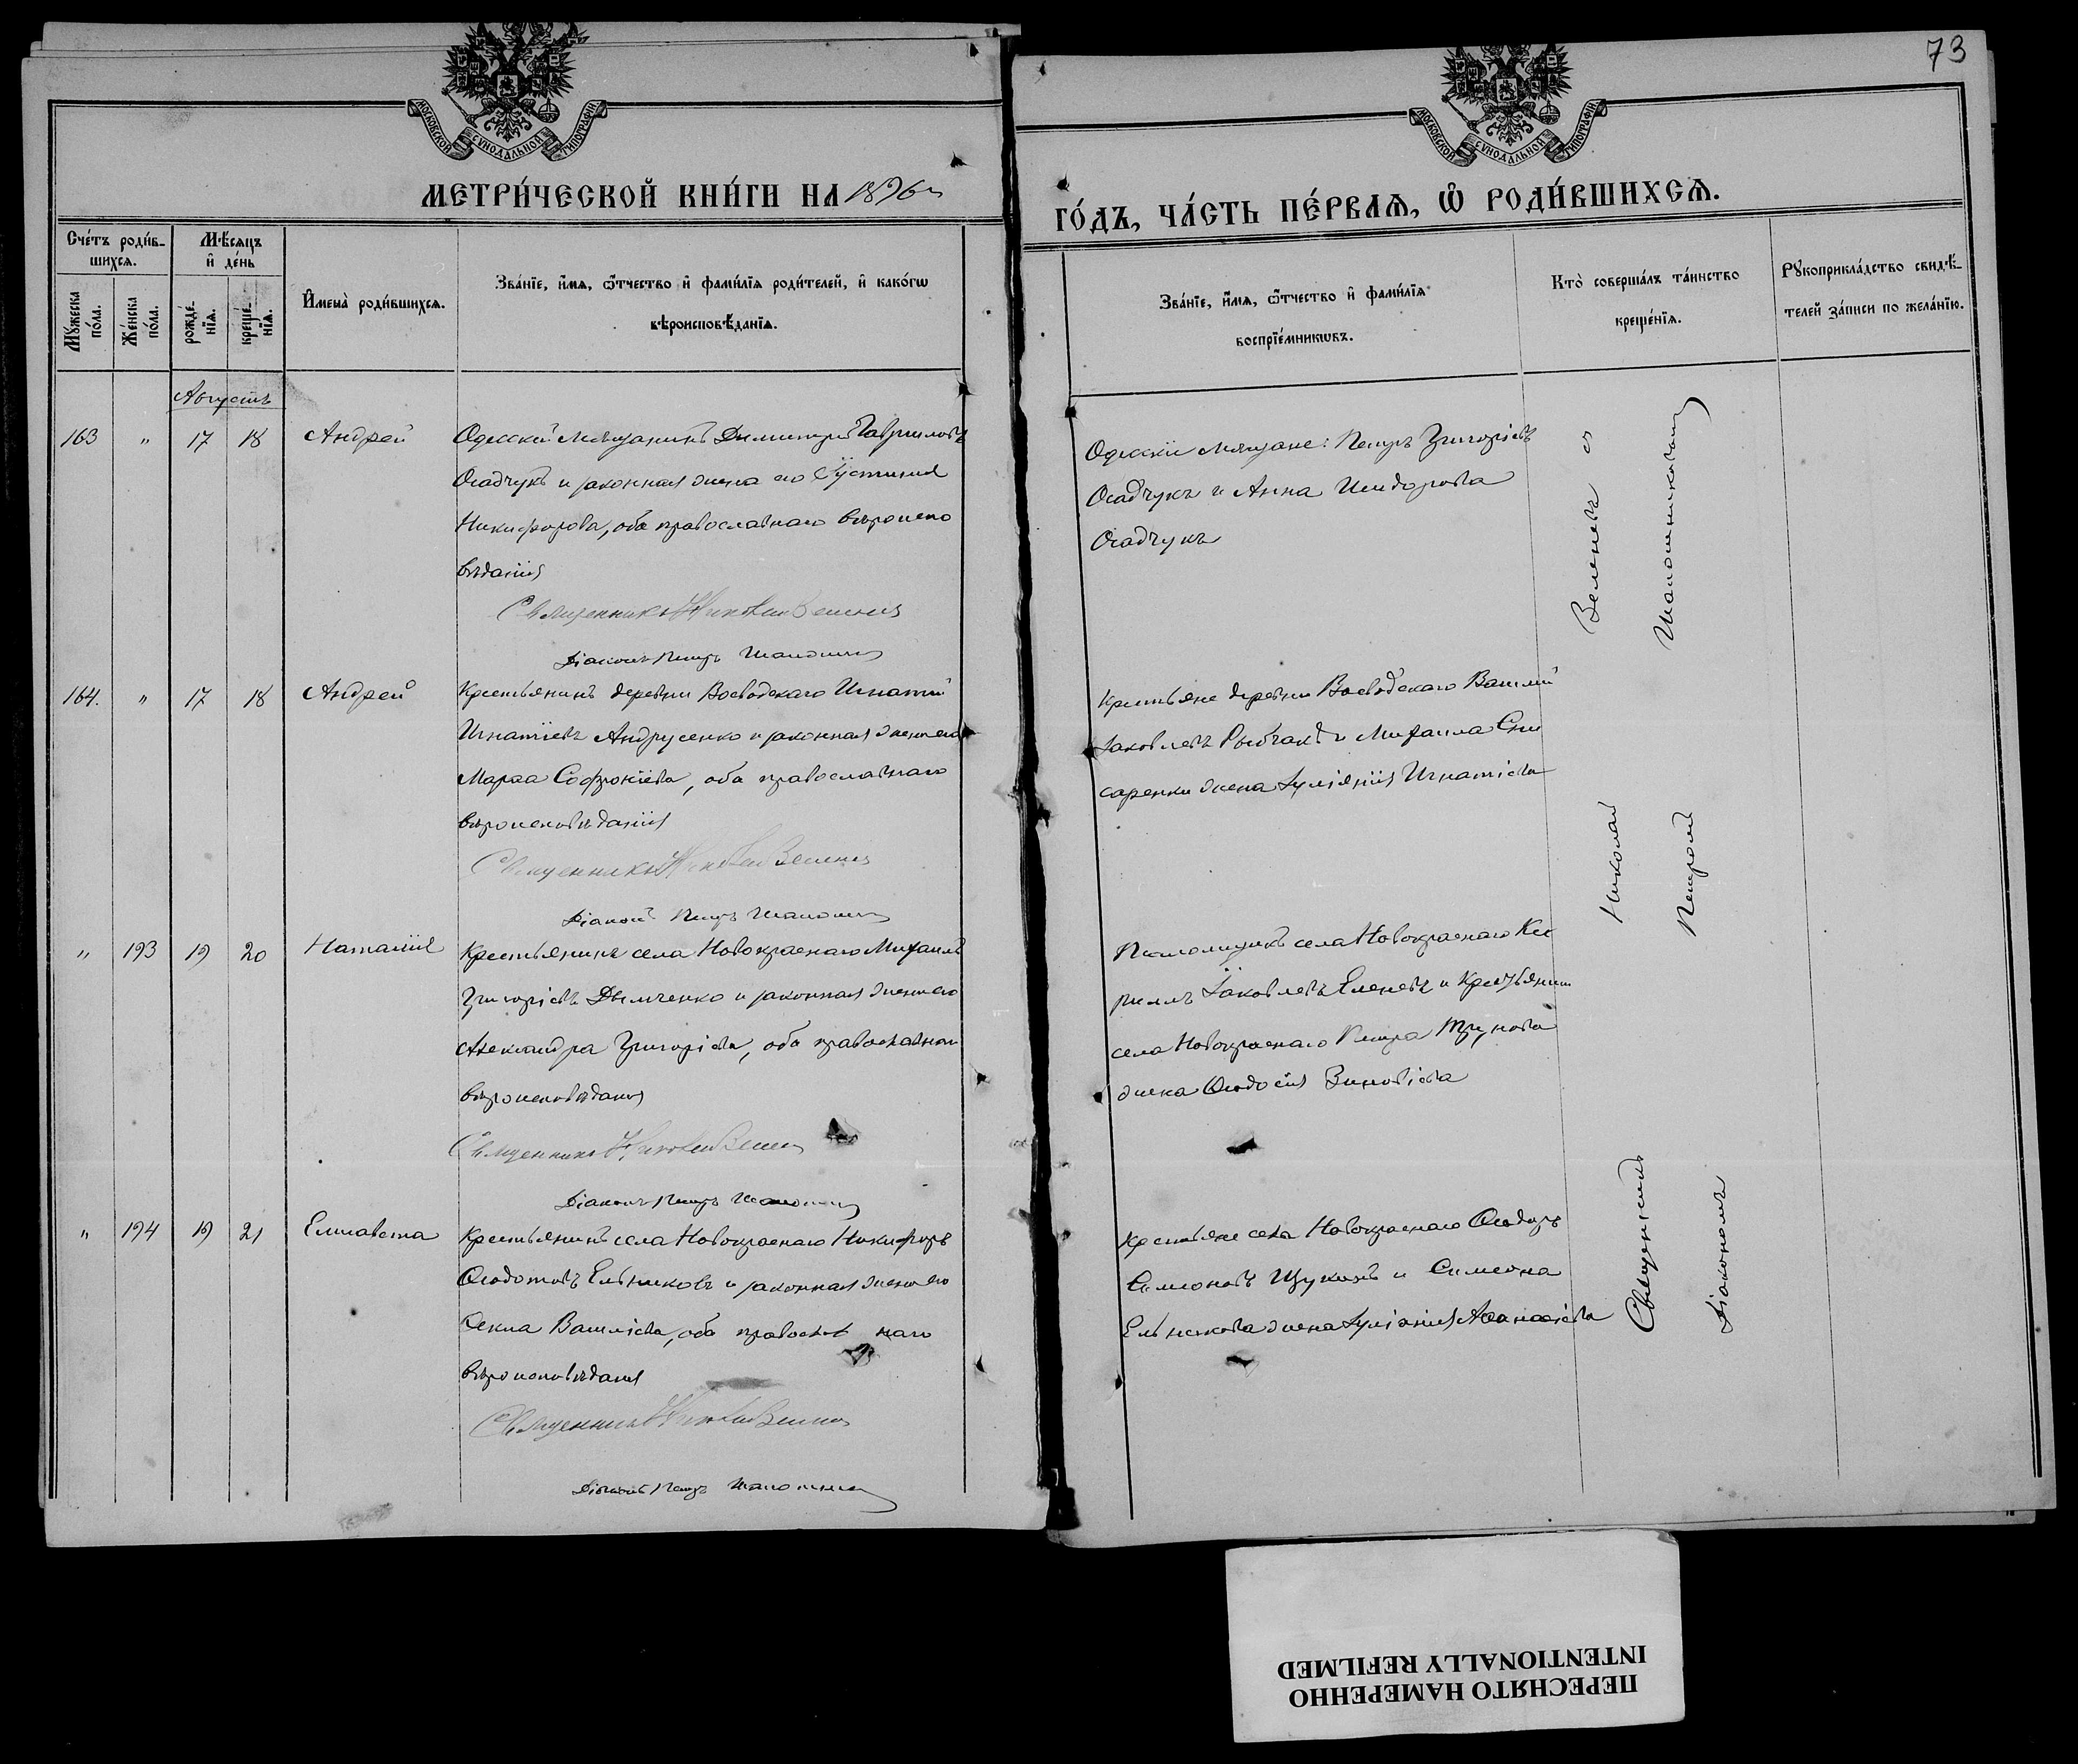 73
МОСКОВСКОЙ СѴНОДАЛЬНОЙ ТИПОГРАФІИ.
МОСКОВСКОЙ СѴНОДАЛЬНОЙ ТИПОГРАФІИ.
МЕТРИ́ЧЕСКОЙ КНИ́ГИ НА 1896 г.
ГО́ДЪ, ЧА́СТЬ ПЕ́РВАѦ, Ѽ РОДИ́ВШИХСѦ.
Сче́тъ роди́в-
шихсѧ.
Мꙋ́жеска по́ла.
Же́нска по́ла.
Мѣ́сѧцъ и҆ де́нь
рожде́нїѧ.
креще́нїѧ.
И҆мена̀ роди́вшихсѧ.
Зва́нїе, и҆́мѧ, ѻ҆́тчество и҆ фами́лїѧ роди́телей, и҆ како́гѡ
вѣроисповѣ́данїѧ.
Зва́нїе, и҆́мѧ, ѻ҆́тчество и҆ фами́лїѧ
воспрїе́мникѡвъ.
Кто̀ соверша́лъ та́инство
креще́нїѧ.
Рꙋкоприкла́дство свидѣ́-
телей за́писи по жела́нїю.
Августъ
163 " 17 18 Андрей
Одесскій мѣщанинъ Димитрій Гавриловъ
Осадчукъ и законная жена его Іустинія
Никифорова, оба православнаго вѣроиспо
вѣданія
Священникъ Николай
Діаконъ Петръ
Одесскіе мѣщане: Петръ Григоріевъ
Осадчукъ и Анна Исидорова
Осадчукъ
164. " 17 18 Андрей
Крестьянинъ деревни Воеводскаго Игнатій
Игнатіевъ Андрусенко и законная жена его
Марѳа Софроніева, оба православнаго
вѣроисповѣданія
Священникъ Николай
Діаконъ Петръ
Крестьяне деревни Воеводскаго Василій
Іаковлевъ Рыбчакъ и Михаила Сли
саренки жена Іуліанія Игнатіева
" 193 19 20 Наталія
Крестьянинъ села Новокраснаго Михаилъ
Григоріевъ Дымченко и законная жена его
Александра Григоріева, оба православнаго
вѣроисповѣданія
Священникъ Николай
Діаконъ Петръ
Псаломщикъ села Новокраснаго Ки
риллъ Іаковлевъ Еленевъ и Крестьянина
села Новокраснаго Петра Трунова
жена Ѳеодосія Зиновіева
" 194 19 21 Елисавета
Крестьянинъ села Новокраснаго Никифоръ
Ѳеодотовъ Ельниковъ и законная жена его
Ѳекла Василіева, оба православнаго
вѣроисповѣданія
Священникъ Николай
Діаконъ Петръ
Крестьяне села Новокраснаго Ѳеодоръ
Симеоновъ Щукинъ и Симеона
Ельникова жена Іуліанія Аѳанасіева
Священникъ Николай
Діакономъ Петромъ
ПЕРЕСНЯТО НАМЕРЕННО
INTENTIONALLY REFILMED